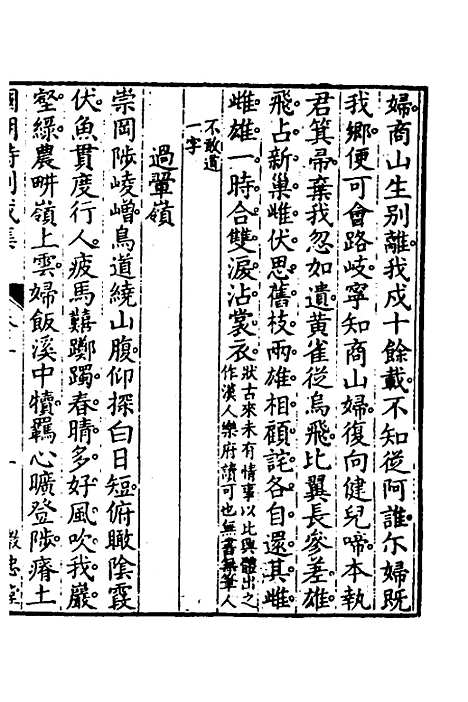 婦商山生别離我戍十餘載不知從阿誰尓婦既
我鄉便可會路岐寧知商山婦復向健兒啼本執
君箕帚棄我忽如遺黃雀從烏飛比翼長參差雄
飛占新巢雌伏思舊枝兩雄相顧詫各自還其雌
雌雄一時合雙淚沾裳衣狀古來未有情事以比興體出之
作漢人樂府讀可也無書無筆人
不敢道
一字
過輩嶺
崇岡陟崚嶒鳥道繞山腹仰探白日短俯瞰陰霞
伏魚貫度行人疲馬鞿躑躅春晴多好風吹我巖
壑綠農畊嶺上雲婦飯溪中犢羈心曠登陟瘠土